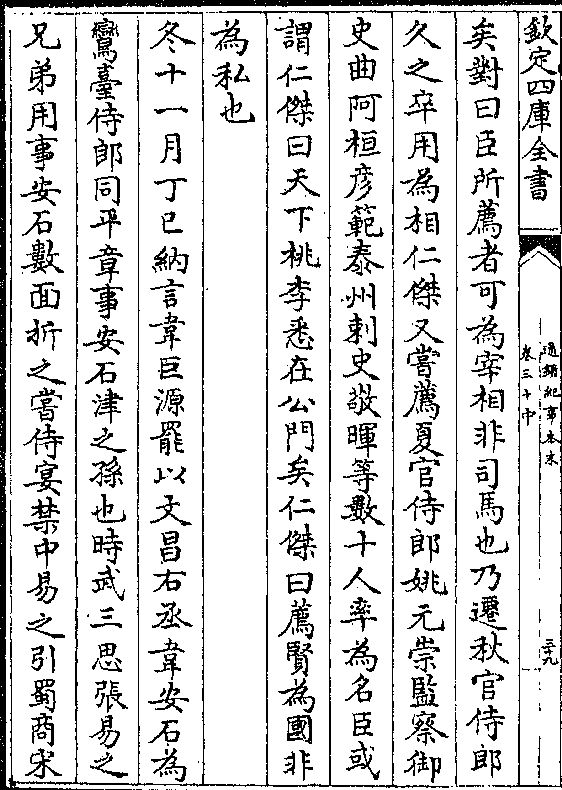 欽定四庫全書
通鑑紀事本末
卷三十中
三十九
矣對曰臣所薦者可為宰相非司馬也乃遷秋官侍郎
久之卒用為相仁傑又嘗薦夏官侍郎姚元崇監察御
史曲阿桓彦範泰州刺史敬暉等數十人率為名臣或
謂仁傑曰天下桃李悉在公門矣仁傑曰薦賢為國非
為私也
冬十一月丁巳納言韋巨源罷以文昌右丞韋安石為
鸞臺侍郎同平章事安石津之孫也時武三思張易之
兄弟用事安石數面折之嘗侍宴禁中易之引蜀商宋